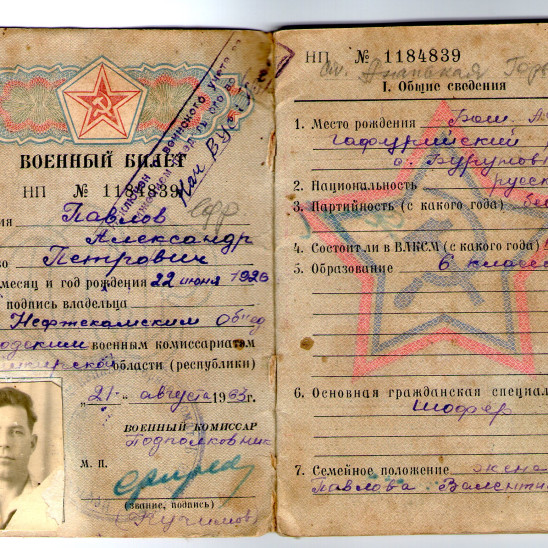 исключен с воинского учета по
Нач ВУС
ВОЕННЫЙ БИЛЕТ
НП № 1184839
ия Павлов
Александр
во Петрович
месяц и год рождения 22 июня 1926
подпись владельца
Нефтекамским Объед
одским военным комиссариатом
ирской области (республики)
„21“ августа 1963г.
ВОЕННЫЙ КОМИССАР
Подполковник
М. П.
(звание, подпись)
НП № 1184839
I. Общие сведения
1. Место рождения Баш А
Гафурийский р
2. Национальность русск
3. Партийность (с какого года) бес
4. Состоял ли в ВЛКСМ (с какого года)
5. Образование 6 класс
6. Основная гражданская специал
Шофер
7. Семейное положение жена
Павлова Валентин